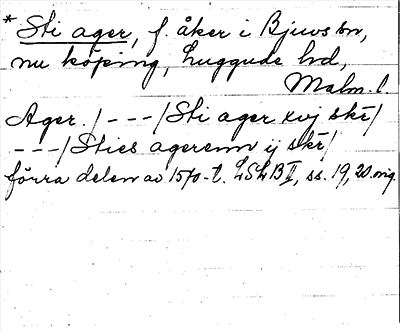 * Sti ager, f. åker i Bjuvs sn,
nu köping, Luggude hd,
Malm. l.
Ager. / - - - / Sti ager xvj skr /
- - - / Sties agerenn ij skr /
förra delen av 1570-t. LSLB II, ss. 19, 20.